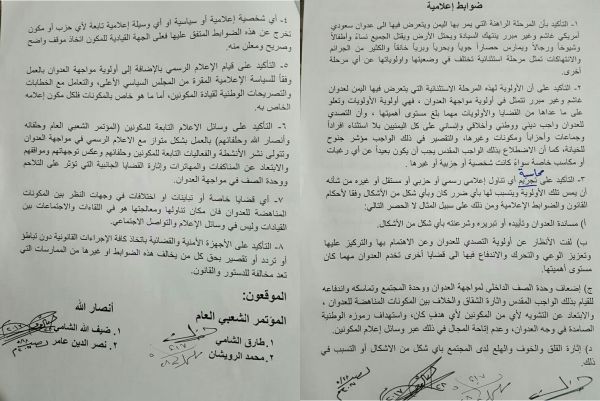 ضوابط إعلامية
١- التأكيد بأن المرحلة الراهنة التي يمر بها اليمن ويتعرض فيها الى عدوان سعودي
أمريكي غاشم وغير مبرر ينتهك السيادة ويحتل الأرض ويقتل الجميع نساءً وأطفالاً
وشيوخاً ورجالاً ويمارس حصاراً جوياً وبحرياً وبرياً خانقاً والكثير من الجرائم
والانتهاكات تمثل مرحلة استثنائية تختلف في وضعيتها واولوياتها عن أي مرحلة
أخرى.
٢- التأكيد على أن الأولوية لهذه المرحلة الاستثنائية التي يتعرض فيها اليمن لعدوان
غاشم وغير مبرر تتمثل في أولوية مواجهة العدوان ، فهي أولوية الأولويات وتعلو
على ما عداها من القضايا والأولويات مهما بلغ مستوى أهميتها ، وأن التصدي
للعدوان واجب ديني ووطني وأخلاقي وإنساني على كل اليمنيين بلا استثناء أفراداً
وجماعات وأحزاباً ومكونات وغيرها، والتقصير في ذلك الواجب مؤشر جنوح
للخيانة، كما أن الاضطلاع بذلك الواجب المقدس يجب أن يكون بعيداً عن أي رغبات
أو مكاسب خاصة سواءً كانت شخصية أو حزبية أو غيرها.
محاسبة
٣- التأكيد على تجريم أي تناول إعلامي رسمي أو حزبي أو مستقل أو غيره من شأنه
أن يمس تلك الأولوية ويتسبب لها بأي ضرر كان وبأي شكل من الأشكال وفقا لأحكام
القانون والضوابط الإعلامية ومن ذلك على سبيل المثال لا الحصر التالي:
أ) مساندة العدوان وتأييده أو تبريره وشرعنته بأي شكل من الأشكال.
ب) لفت الأنظار عن أولوية التصدي للعدوان وعن الاهتمام بها والتركيز عليها
وتعزيز الوعي والتحرك والاندفاع فيها الى قضايا أخرى تخدم العدوان مهما كان
مستوى أهميتها.
ج) إضعاف وحدة الصف الداخلي لمواجهة العدوان ووحدة المجتمع وتماسكه واندفاعه
للقيام بذلك الواجب المقدس وإثارة الشقاق والخلاف بين المكونات المناهضة للعدوان ،
والابتعاد عن التشويه لأي من المكونين لأي هدف كان، واستهداف رموزه الوطنية
الصامدة في وجه العدوان، وعدم إتاحة المجال في ذلك عبر وسائل إعلام المكونين.
د) إثارة القلق والخوف والهلع لدى المجتمع بأي شكل من الأشكال أو التسبب في
ذلك.
٤- أي شخصية إعلامية أو سياسية او أي وسيلة إعلامية تابعة لأي حزب أو مكون
تخرج عن هذه الضوابط المتفق عليها فعلى الجهة القيادية للمكون اتخاذ موقف واضح
وصريح ومعلن منه.
٥- التأكيد على قيام الإعلام الرسمي بالإضافة إلى أولوية مواجهة العدوان بالعمل
وفقاً للسياسة الإعلامية المقرة من المجلس السياسي الأعلى، والتعامل مع الخطابات
والتصريحات الوطنية لقيادة المكونين، أما ما هو خاص بالمكونات فلكل مكون إعلامه
الخاص به.
٦- التأكيد على وسائل الاعلام التابعة للمكونين (المؤتمر الشعبي العام وحلفائه
وأنصار الله وحلفائهم) بالعمل بشكل متواز مع الاعلام الرسمي في مواجهة العدوان
وتتولى نشر الأنشطة والفعاليات التابعة للمكونين وحلفائهم وعكس توجهاتهم ومواقفهم
والابتعاد عن المناكفات والمهاترات وإثارة القضايا الجانبية التي تؤثر على التلاحم
ووحدة الصف في مواجهة العدوان.
٧- أي قضايا خاصة أو تباينات او اختلافات في وجهات النظر بين المكونات
المناهضة للعدوان فإن مكان تناولها ومعالجتها هو في اللقاءات والاجتماعات بين
القيادات وليس في وسائل الإعلام والتواصل الاجتماعي.
٨- التأكيد على الأجهزة الأمنية والقضائية باتخاذ كافة الإجراءات القانونية دون تباطؤ
أو تردد أو تقصير بحق كل من يخالف هذه الضوابط او غيرها من الممارسات التي
تعد مخالفة للدستور والقانون.
الموقعون:
المؤتمر الشعبي العام
١. طارق الشامي
٢. محمد الرويشان
أنصار الله
١. ضيف الله الشامي
٢. نصر الدين عامر